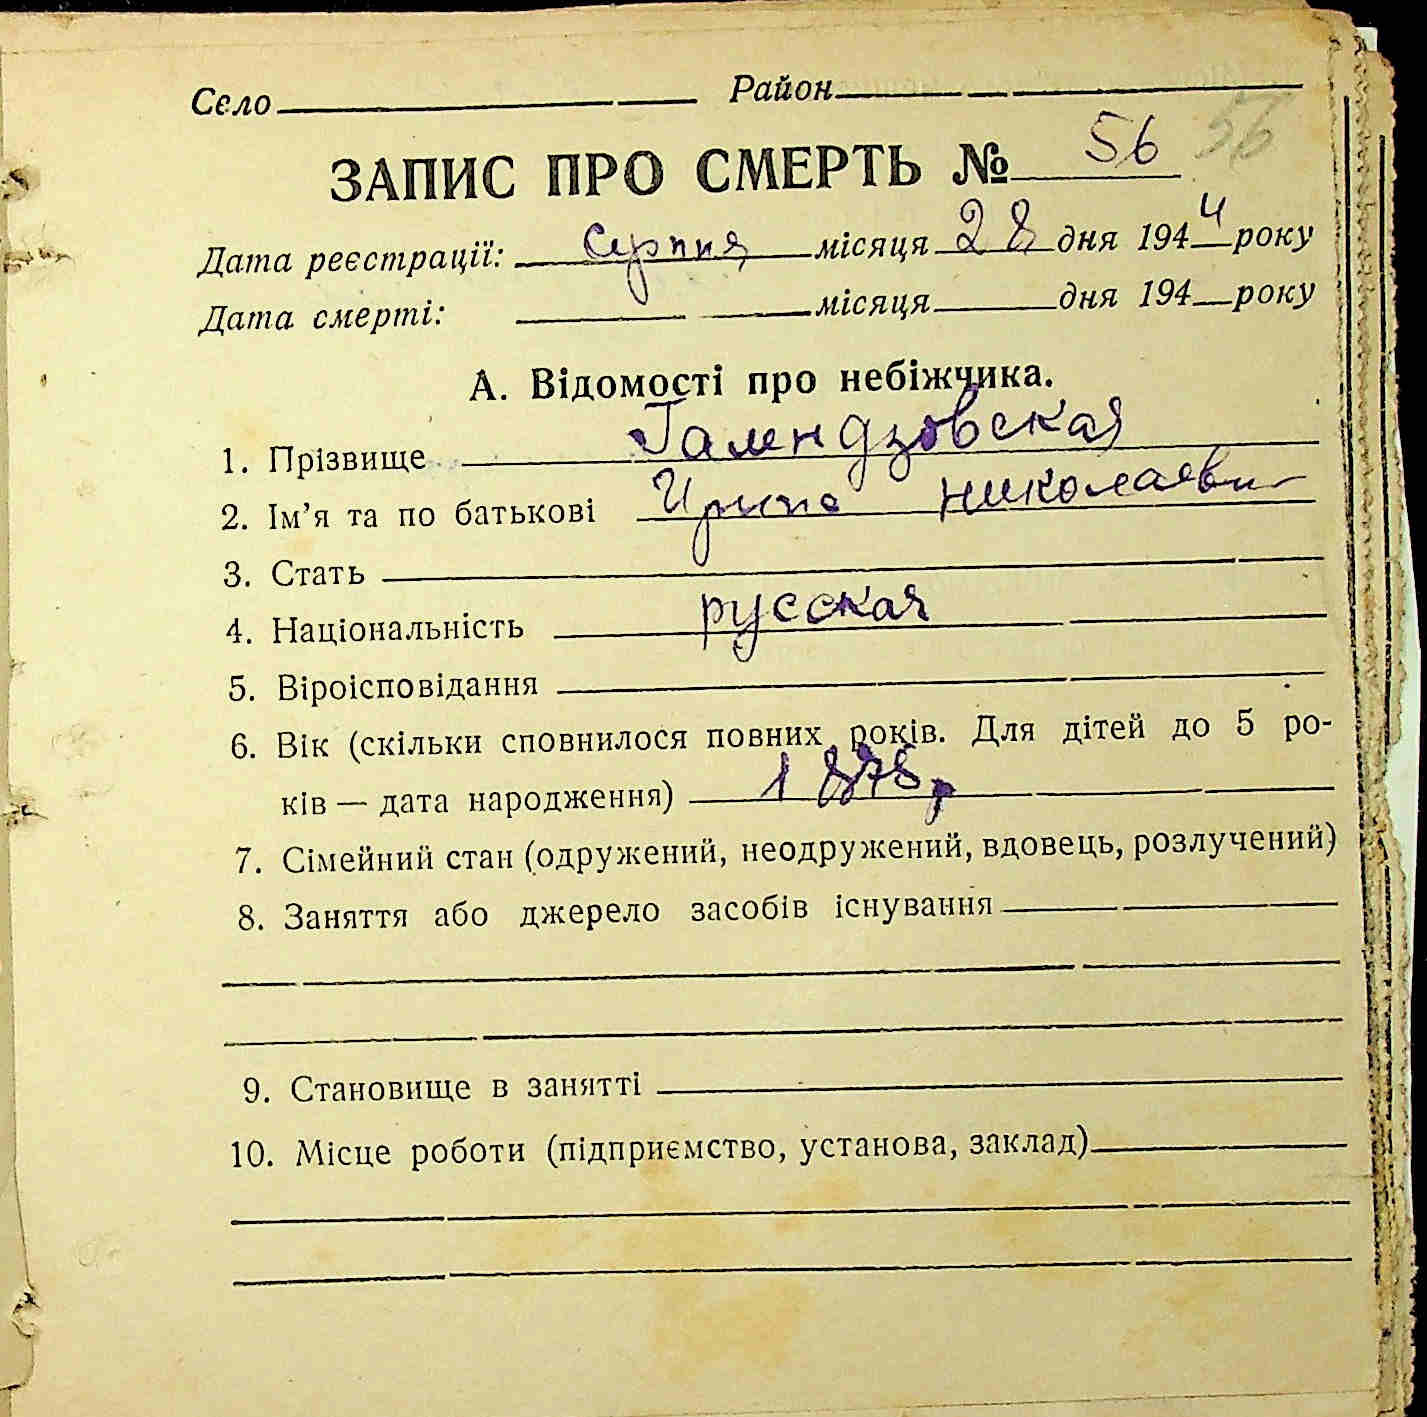 Село Район
ЗАПИС ПРО СМЕРТЬ № 56 56
Дата реєстрації: серпня місяця 28 дня 1944 року
Дата смерті: місяця дня 194 року
А. Відомості про небіжчика.
1. Прізвище Галендзовская
2. Ім'я та по батькові Ирина Николаевн
3. Стать
4. Національність русская
5. Віроісповідання
6. Вік (скільки сповнилося повних років. Для дітей до 5 ро-
ків — дата народження) 1878 р
7. Сімейний стан (одружений, неодружений, вдовець, розлучений)
8. Заняття або джерело засобів існування
9. Становище в занятті
10. Місце роботи (підприємство, установа, заклад)